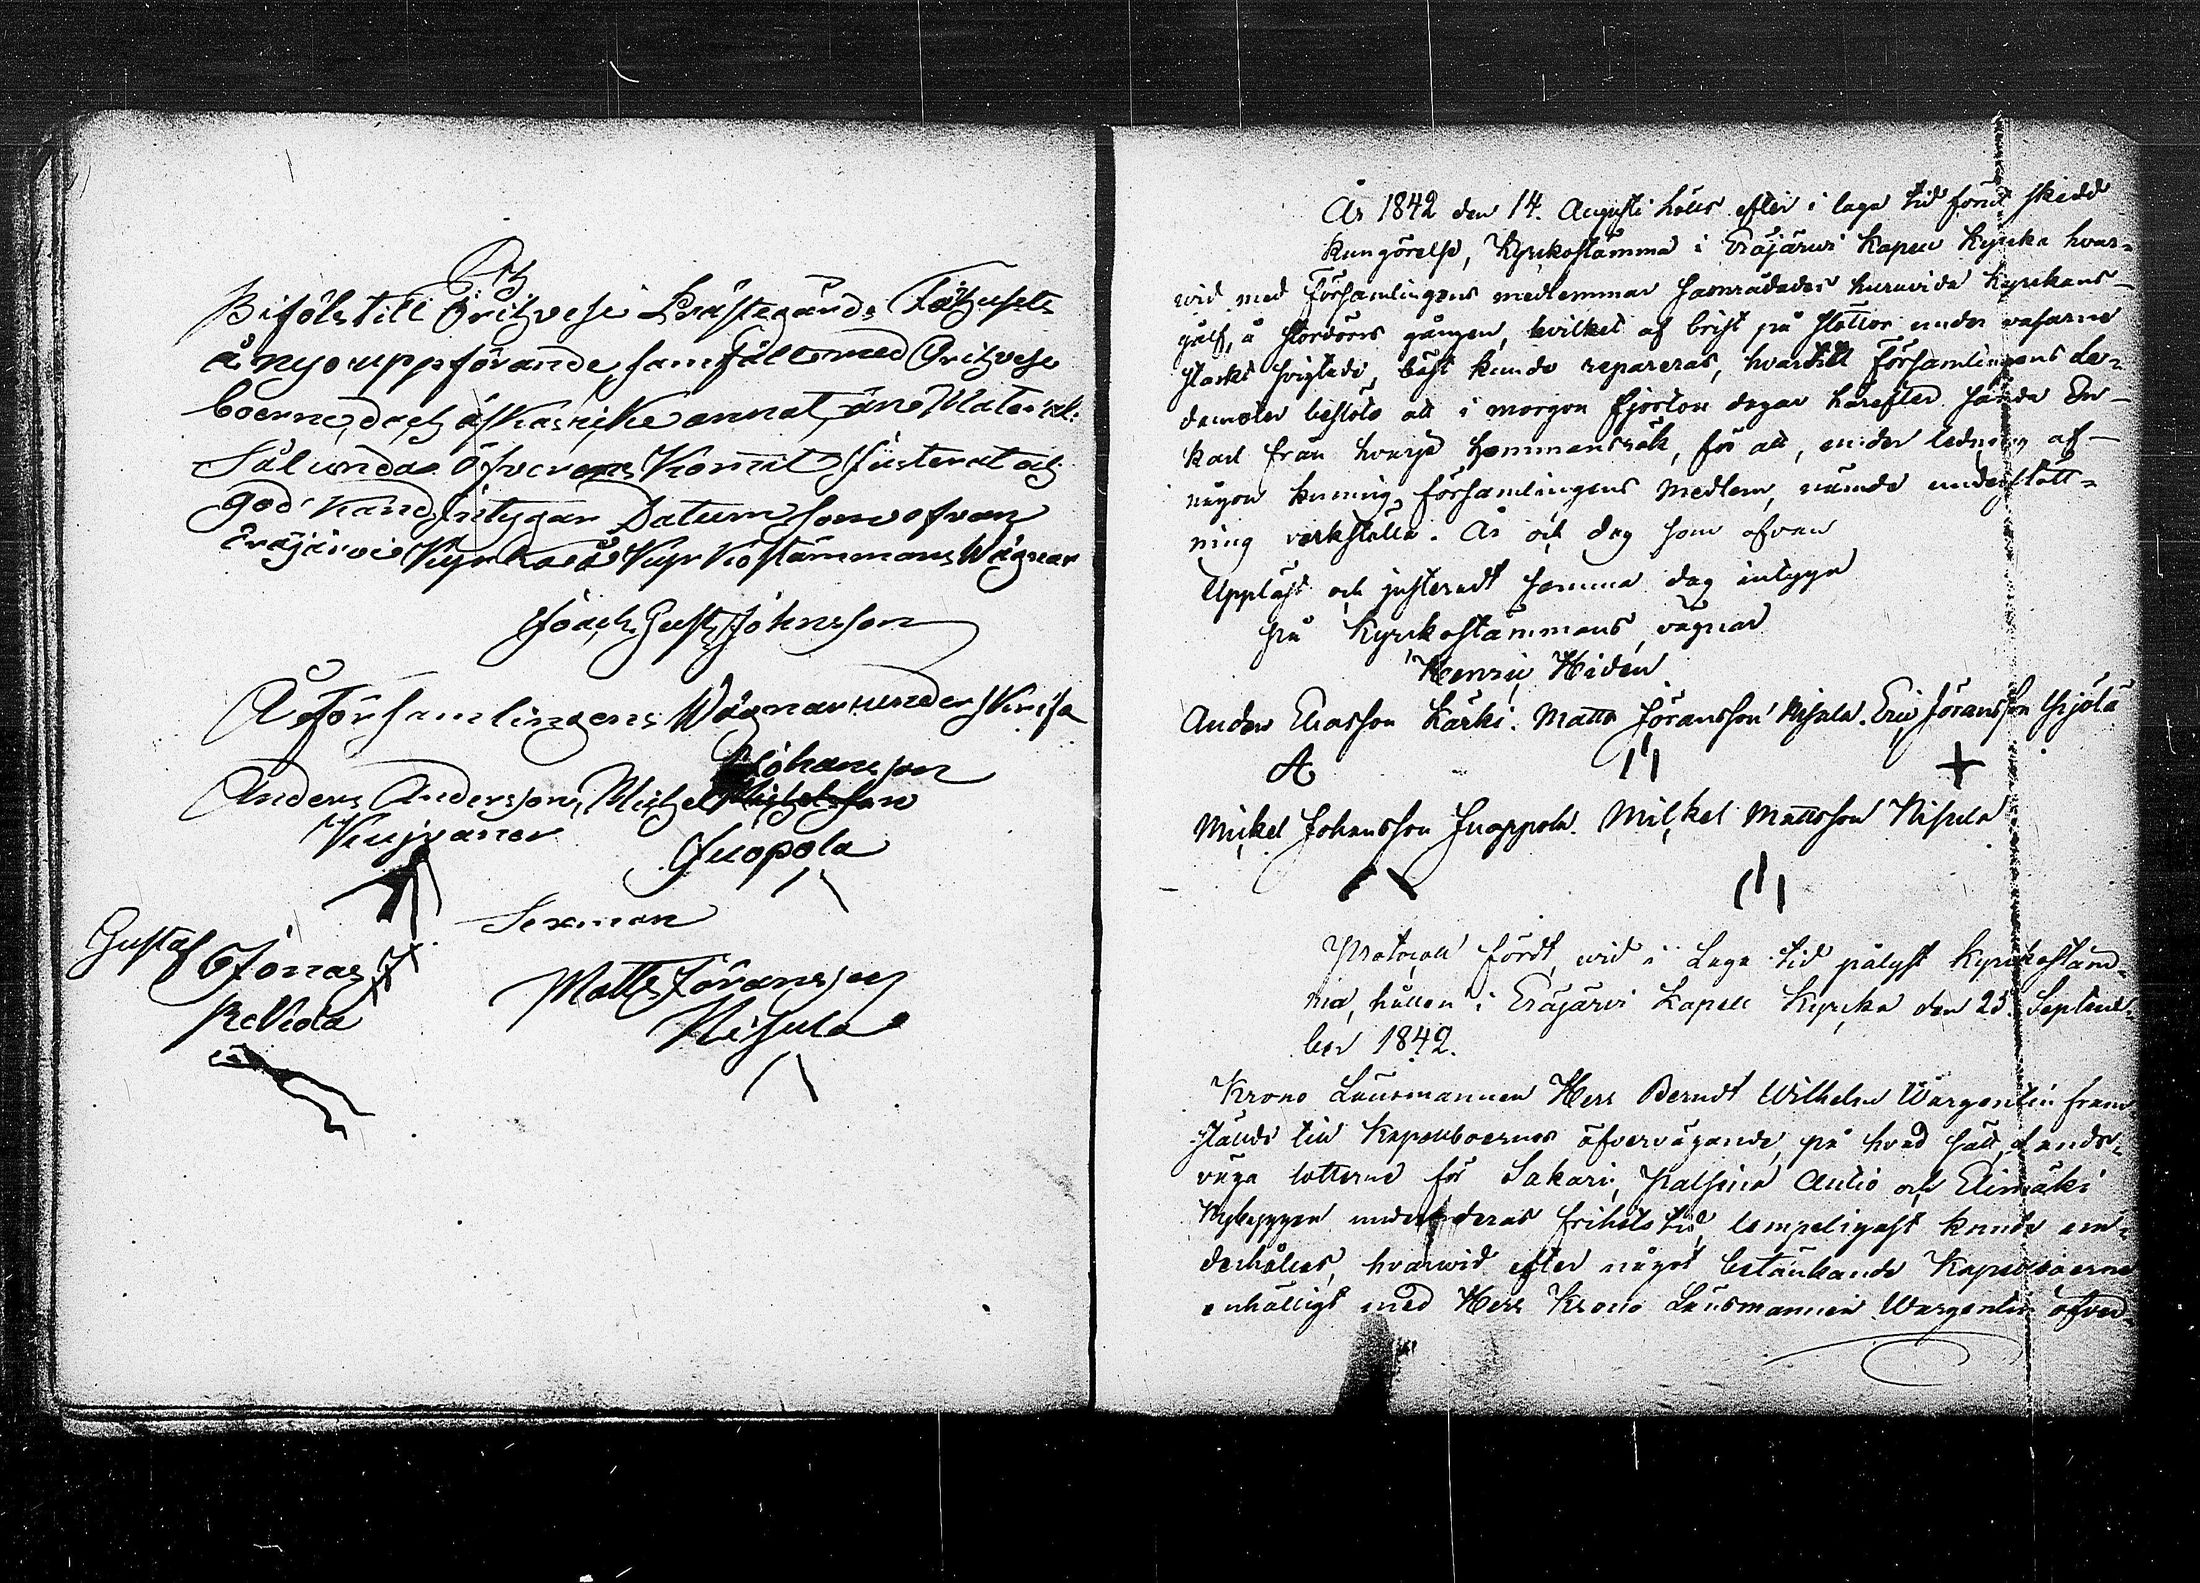 Och
Bifölstill Öritzvesi Prästegårds Fähusets
å nyo uppförande, samfält med Öritzvesi
boerne, doch åstkas icke annat, än Material:
Sålunda öfverens Kommit Justerat och
god känd Intygar Datum som ofvan
Eräjärvi Kyrka å Kyrkostämmans Wägnar
Joach. Gust. Johnsson
Å Församlingens Wägnar underskrifva
Johansson
Anders Andersson, Michel Michelsson
Kujvaner Juopola
Sexman
Gustaf Jonas
Rekola
Matts Göransson
Nisula
År 1842 den 14. Augusti hölls efter i laga tid förut skedd
kungörelse, Kyrkostämma i Eräjärwi Kapell Kyrka hvar-
wid med Församlingens medlemmar samrådades huruvida Kyrkans
golf, å stordörrs gången, hvilket af brist på stöttor under vasarne
starkt sviktade, bäst kunde repareras, hvartill Församlingens Le-
damöter beslöto att i morgon fjorton dagar härefter sända En
karl från hvarje hemmansrök, för att, under ledning af
någon kunnig Församlingens Medlem, nämde understött-
ning verkställa. År och dag som ofvan
Uppläst och justeradt samma dag intyga
På Kyrkostämmans vägnar
Henric Hidén
Anders Eliasson Kärki. Matts Göransson Nisula. Eric Göransson Yrjölä
A + 
Mickel Johansson Juoppola. Mickel Mattsson Nisula
Protocoll fördt, wid i Laga tid pålyst Kyrkostäm-
ma, hållen i Eräjärvi Kapell Kyrka den 25 Septem-
ber 1842.
Krono Länsmannen Herr Berndt Wilhelm Wargentin fram
stälde till Kapellboernes öfvervägande, på hvad sätt, lands-
väga lotterne för Sakari, Palsina Autio och Eimäki
Nybyggen under deras frihets tid, lämpeligast kunde un-
derhållas, hvarwid efter något betänkande Kapellboerne
enhälligt med Herr Krono Länsmannen Wargentin öfver-